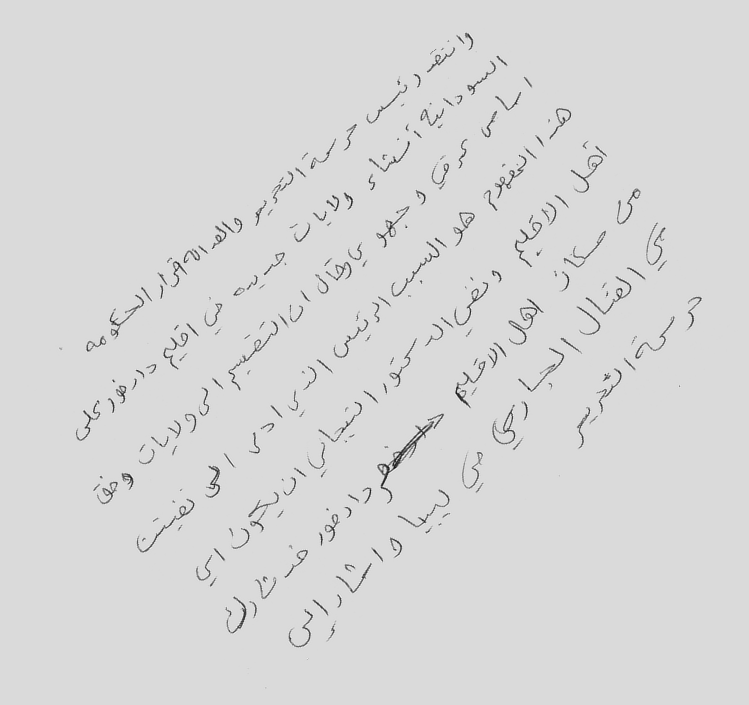 وانتقد رئيس حركة التحرير والعدالة قرار الحكومه
السودانية أنشاء ولايات جديده في اقليم دارفور على
اساس عرقي وجهوي وقال ان التقسيم الى ولايات وفق
هذا المفهوم هو السبب الرئيس الذي ادى الى تفتيت
اهل الاقليم ونفى الدكتور التيجاني ان يكون اي
من سكان اهل الاقليم دارفور قد شارك
في القتال الجاري في ليبيا واشار إلى
حركة التحرير